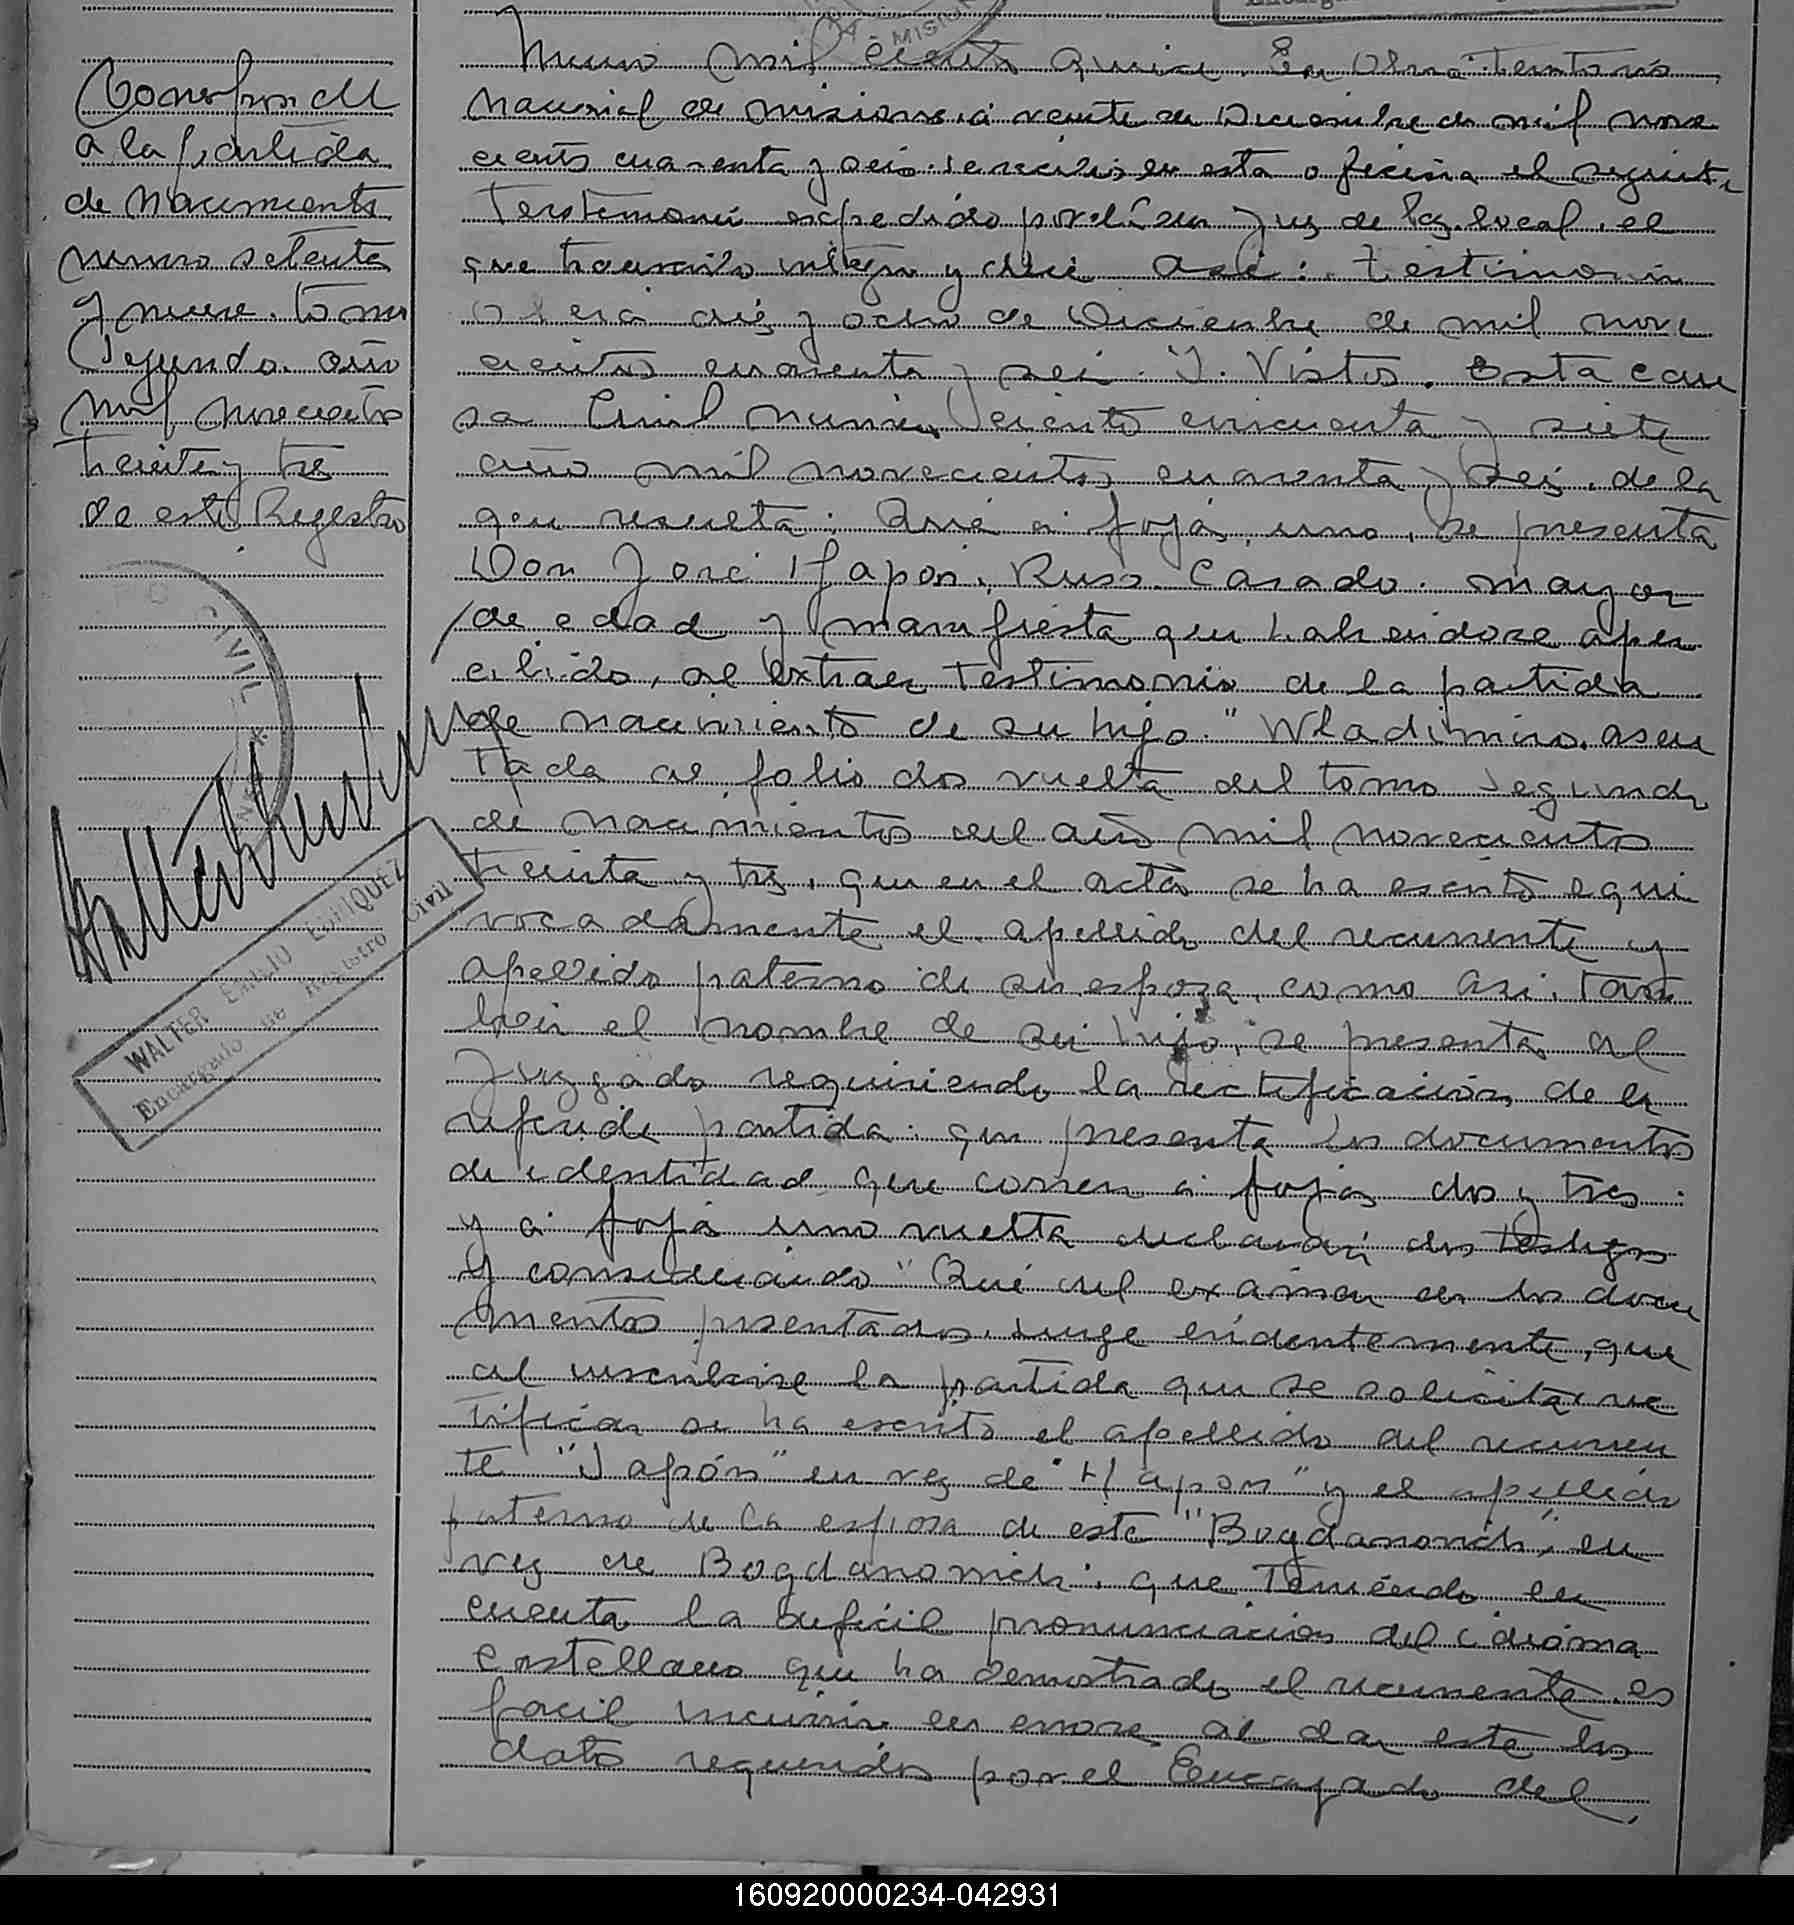 MISIO
Corresponde
a la partida
de nacimiento
numero setenta
y nueve. tomo
Segundo. año
mil novecientos
treinta y tres
de este Registro
CIVIL
WALTER EMILIO ENRIQUEZ
Encargado de Registro Civil
Numero mil ciento quince. En Oberá. Territorio
Nacional de Misiones, á veinte de Diciembre de mil nove
cientos cuarenta y seis. se recibió en esta oficina el siguiente
Testimonio expedido por el Señor Juez de Paz local, el
que transcribo integro y dice asi: Testimonio
Oberá diez y ocho de Diciembre de mil nove
cientos cuarenta y seis. Y. Vistos. Esta cau
sa Civil numero ciento cincuenta y siete
año mil novecientos cuarenta y seis, de la
que resulta: Que á fojas uno, se presenta
Don José Hapon, Ruso. Casado. mayor
de edad y manifiesta que habiendose aper
cibido, al extraer testimonio de la partida
de nacimiento de su hijo "Wladimiro, asen
tada al folio dos vuelta del tomo segundo
de nacimientos del año mil novecientos
treinta y tres, que en el acta se ha escrito equi
vocadamente el apellido del recurrente y
apellido paterno de su esposa, como asi, tam
bien el nombre de su hijo, se presenta al
Juzgado requiriendo la rectificación de la
referida partida: que presenta los documentos
de identidad que corren á fojas dos y tres:
y á fojas uno vuelta declaran dos testigos
Y considerando "Qué del examen de los docu
mentos presentados, surge evidentemente, que
al inscribirse la partida que se solicita rec
tificar se ha escrito el apellido del recurren
te "Japón" en vez de "Hapon" y el apellido
paterno de la esposa de este "Bogdanonch", en
vez de Bogdanowich: que teniendo en
cuenta la dificil pronunciacion del idioma
Castellano que ha demostrado el recurrente, es
facil incurrir en errores al dar este los
datos requeridos por el Encargado del
160920000234-042931